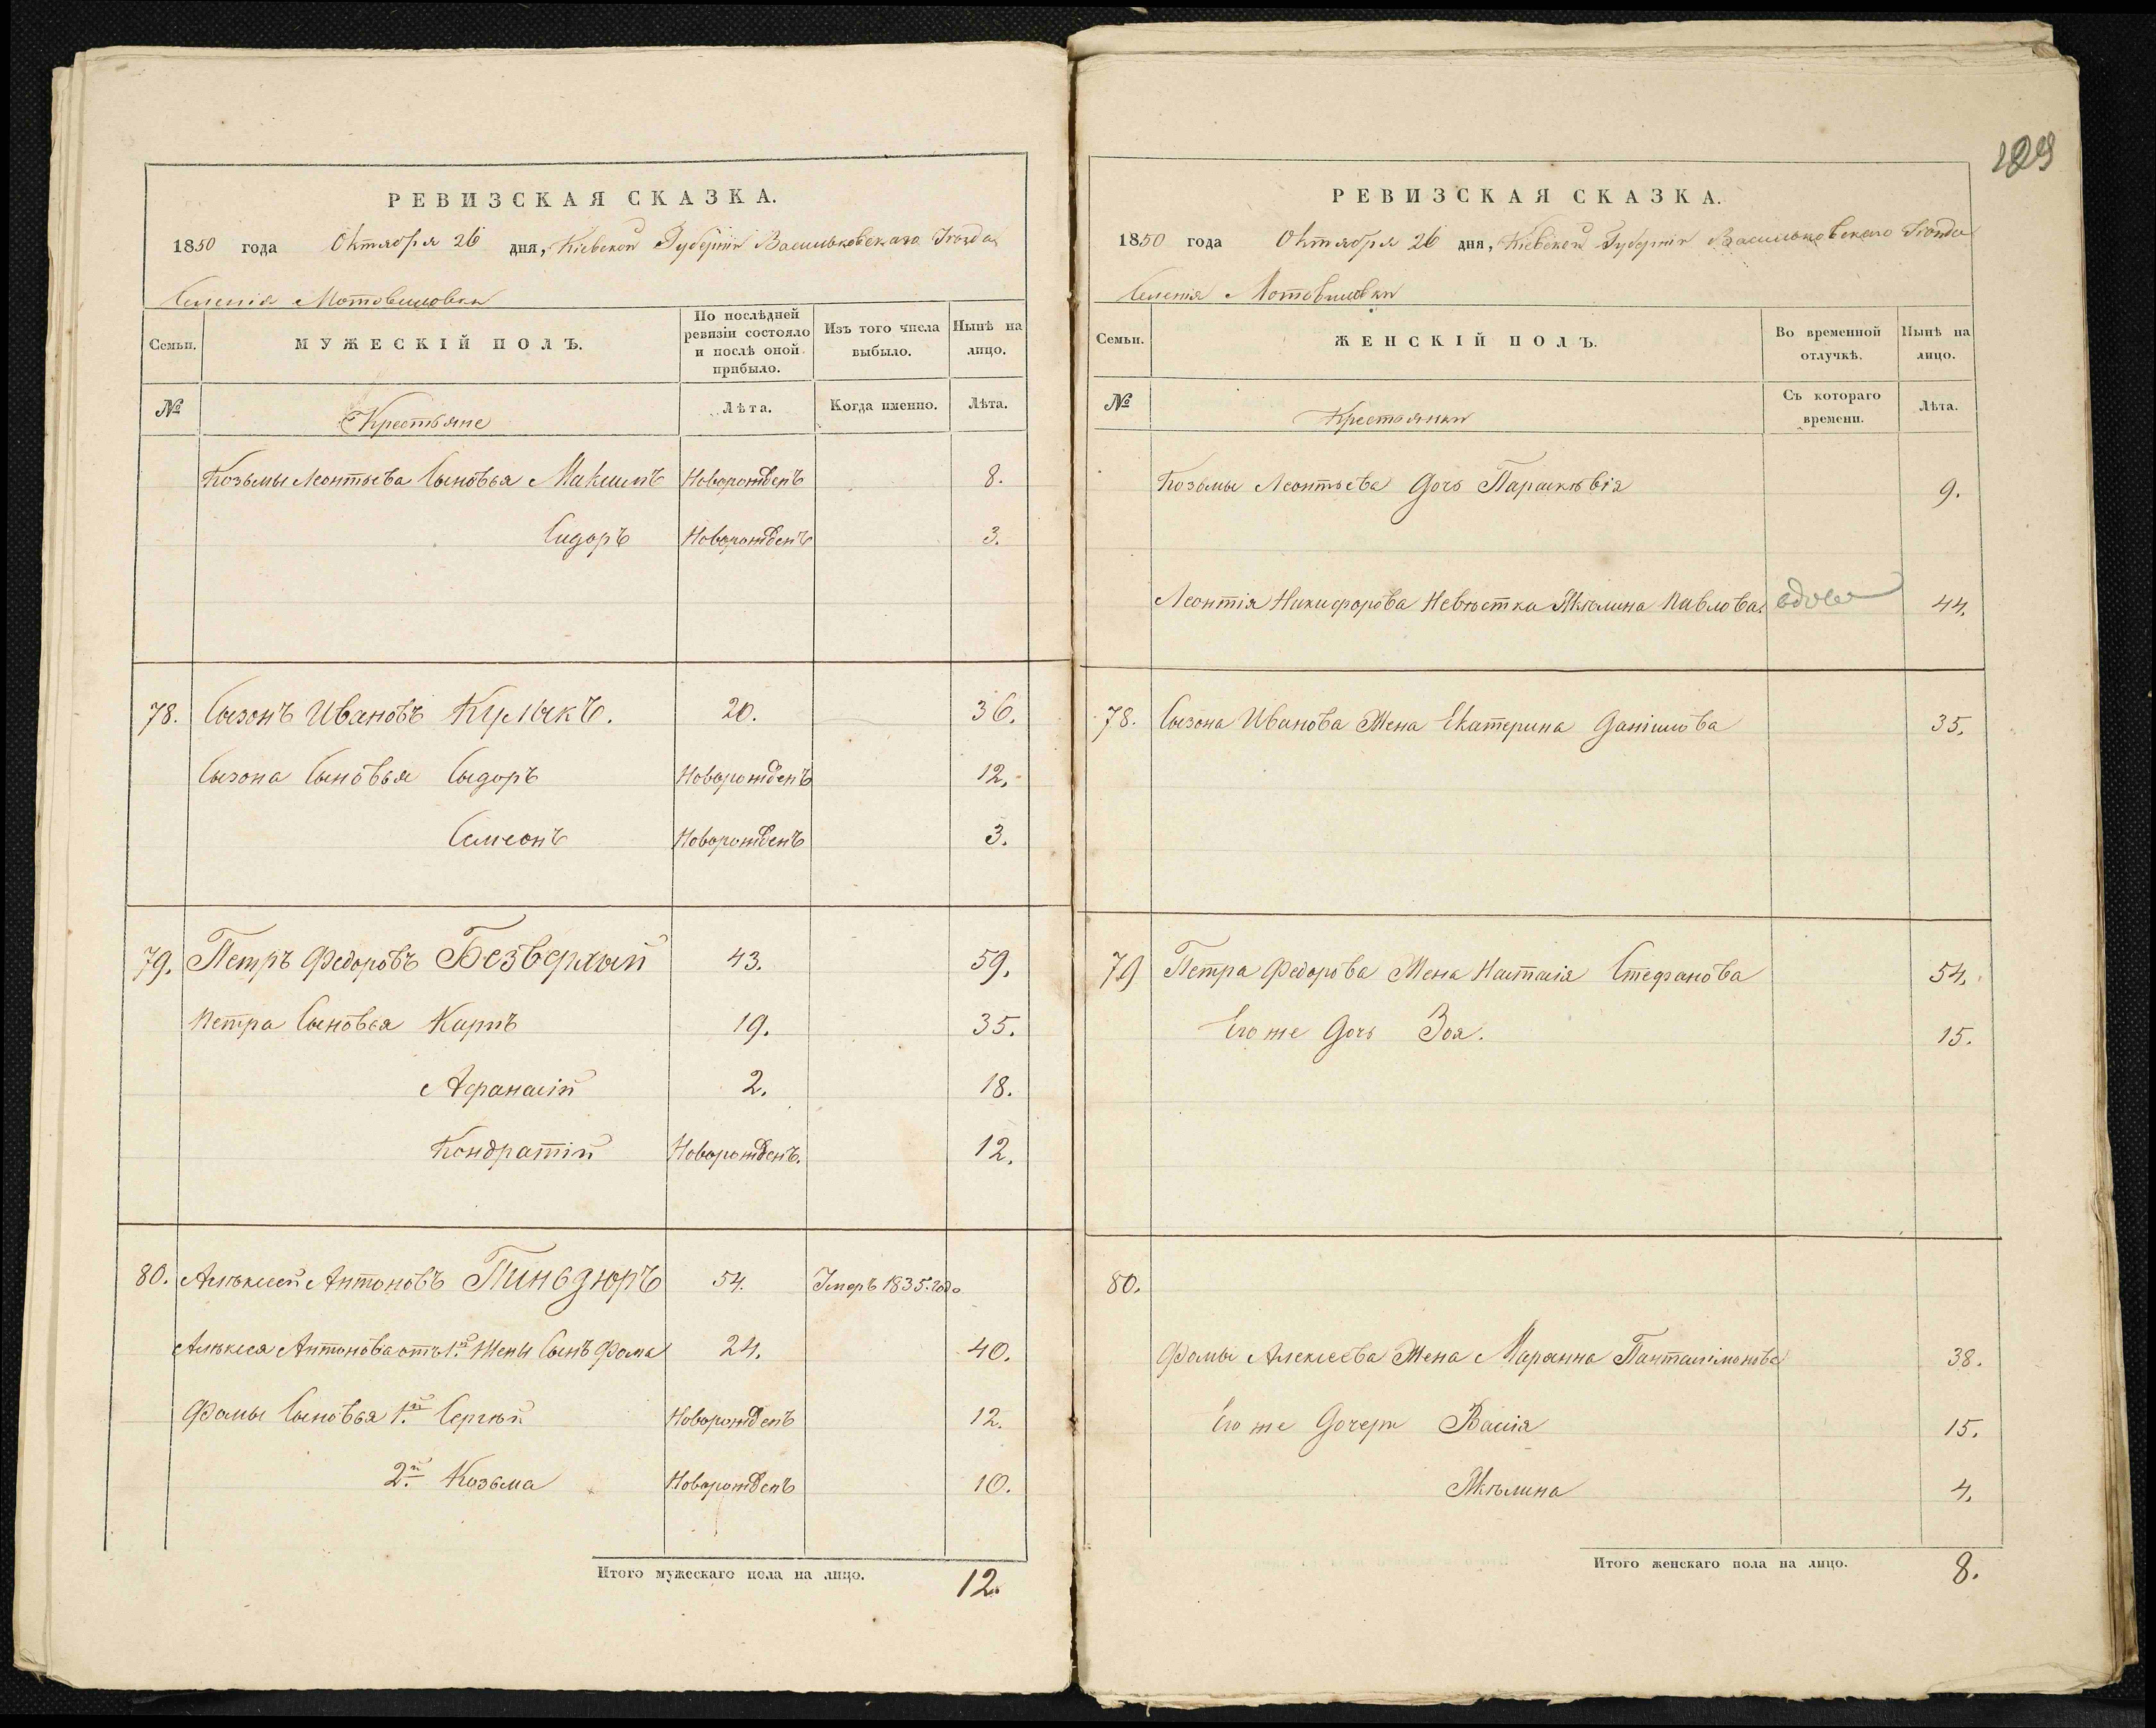 РЕВИЗСКАЯ СКАЗКА.
1850 года Октября 26 дня, Кіевской Губерніи Васильковскаго Уѣзда
Селенія Мотовиловки
Семьи.
МУЖЕСКІЙ ПОЛЪ.
По послѣдней ревизіи состояло и послѣ оной прибыло.
Изъ того числа выбыло.
Нынѣ на лицо.
№
Крестьяне
Лѣта.
Когда именно.
Лѣта.
Козьмы Леонтьева Сыновья Максимъ Новорожденъ 8.
Сидоръ Новорожденъ 3.
78. Сызонъ Ивановъ 20. 36.
Сызона Сыновья Сыдоръ Новорожденъ 12.
Симеонъ Новорожденъ 3.
79. Петръ Федоровъ Безверхый 43. 59.
Петра Сыновья Карпъ 19. 35.
Афанасій 2. 18.
Кондратій Новорожденъ. 12.
80. Алѣксей Антоновъ Пиньдюръ 54. Умеръ 1835. года
Алѣксея Антонова отъ 1й Жены Сынъ Фома 24. 40.
Фомы Сыновья 1й Сергѣй Новорожденъ 12.
2й Козьма Новорожденъ 10.
Итого мужескаго пола на лицо. 12.
189
РЕВИЗСКАЯ СКАЗКА.
1850 года Октября 26 дня, Кіевской Губерніи Васильковскаго Уѣзда
Селенія Мотовиловки
Семьи.
ЖЕНСКІЙ ПОЛЪ.
Во временной отлучкѣ.
Нынѣ на лицо.
№
Крестьянки
Съ котораго времени.
Лѣта.
Козьмы Леонтьева Дочь Параскѣвія 9.
Леонтія Никифорова Невѣстка Мкѣлина Павлова вдова 44.
78. Сызона Иванова Жена Екатерина Данілова 35.
79 Петра Федорова Жена Настасія Стефанова 54.
Его же Дочь Зоя. 15.
80.
Фомы Алексеева Жена Маріанна Панталимонова 38.
Его же Дочери Васія 15.
Мкѣлина 4.
Итого женскаго пола на лицо. 8.